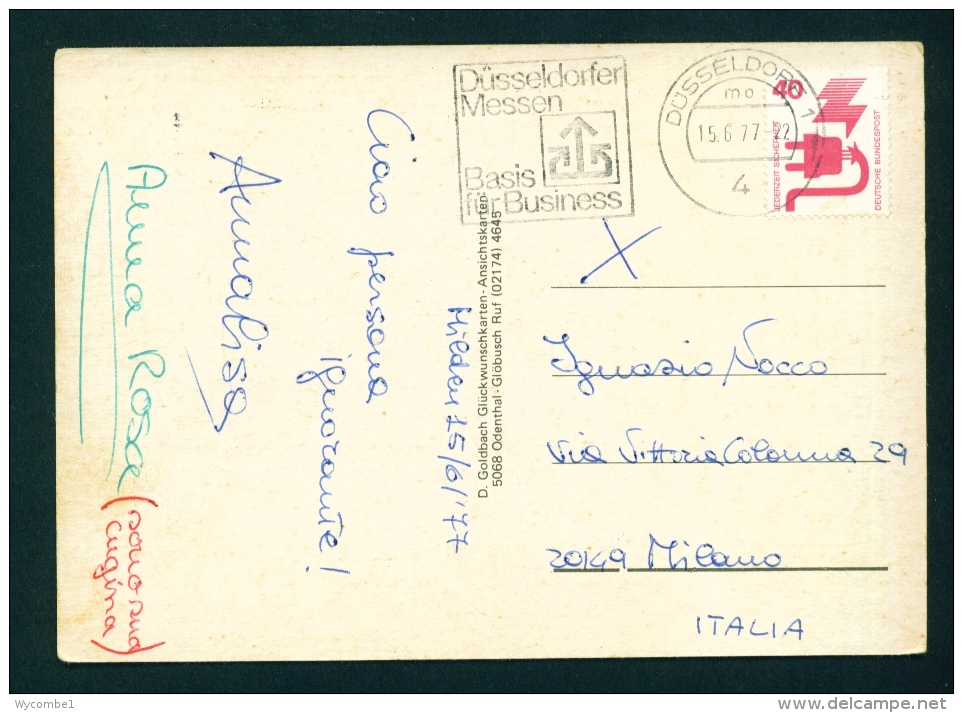 Düsseldorfer
Messen
Basis
für Business
DÜSSELDORF 1
mo
15.6.77-22
4
40
JEDERZEIT SICHERHEIT
DEUTSCHE BUNDESPOST
Hilden 15/6/'77
Ciao persona
ignorante!
Annalisa
Anna Rosa
(sono sua
cugina)
D. Goldbach Glückwunschkarten - Ansichtskarten
5068 Odenthal-Glöbusch Ruf (02174) 4645
X
Ignazio Nocco
Via Vittoria Colonna 29
20149 Milano
ITALIA
Wycombe1
www.delcampe.net